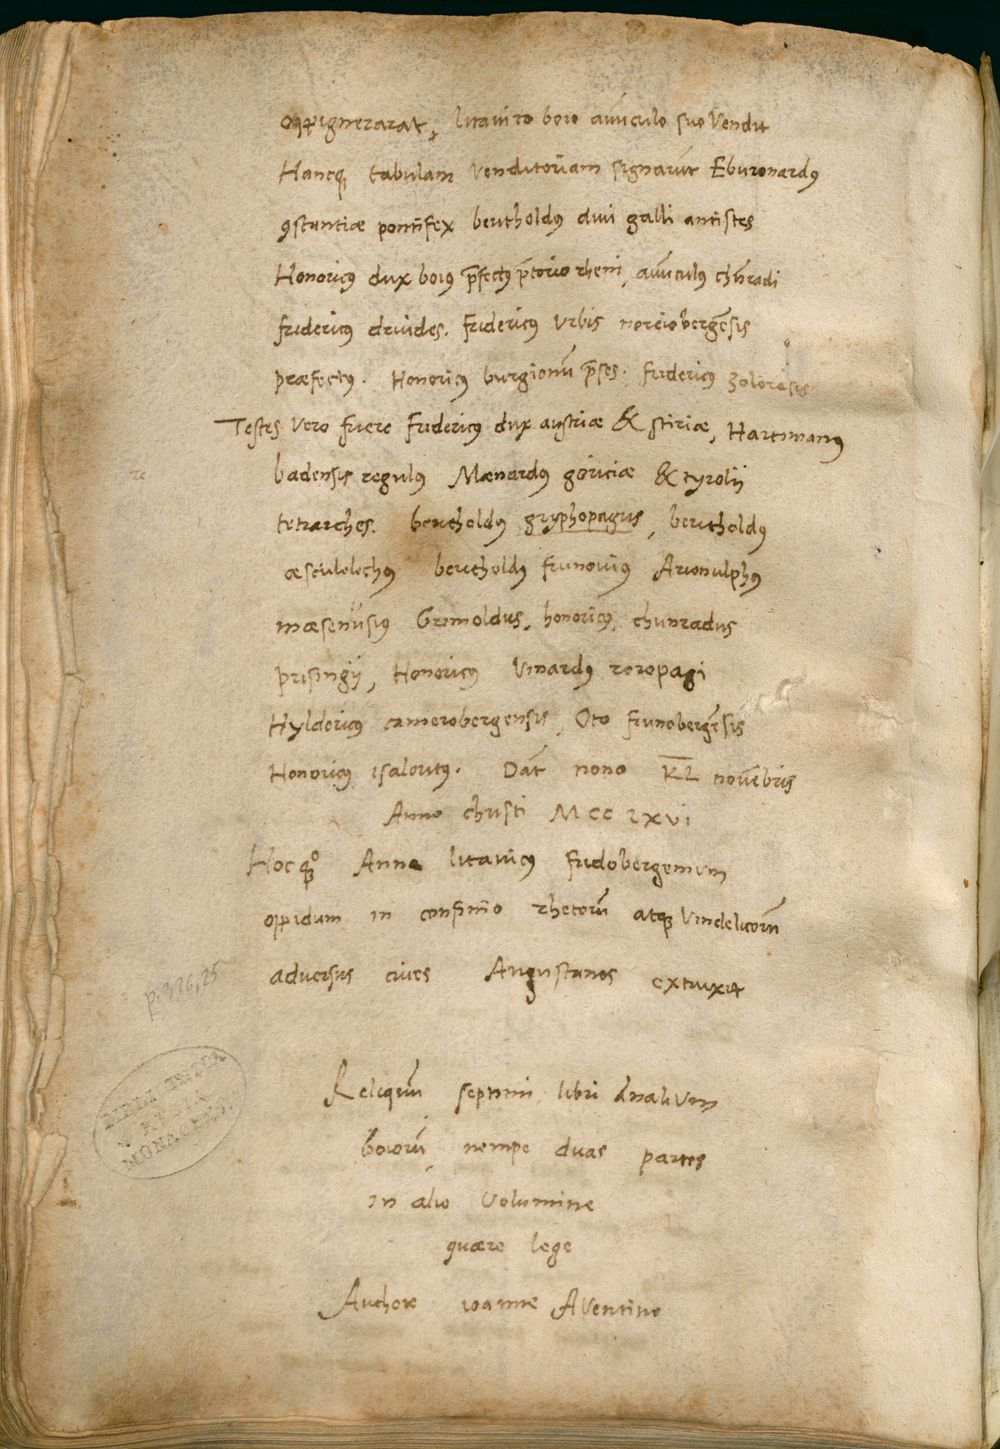 oppignerarat, litavico boio avūculo suo Vendit
Hancq; tabulam Venditoriam signarūt Eburonardꝰ
ꝯstantiæ pontifex bertholdꝰ divi galli antistes
Honoricꝰ dux boiꝰ p̄fectꝰ p̄torio rheni, avūculus chūradi
fridericꝰ druides. Fridericꝰ Vrbis noreiobergēsis
præfectꝰ. Honoricꝰ burgionū p̄ses. fridericꝰ zolerēsis
Testes Vero fuere Fridericꝰ dux austriæ & stiriæ, Hartmanꝰ
badensis regulꝰ Mænardꝰ goriciæ & tyrolij
tetrarches. bertholdꝰ gryphopagus, bertholdꝰ
æsculolochꝰ bertholdꝰ frunoviꝰ Arionulphꝰ
mæsenūsiꝰ Grimoldus, honoricꝰ, chunradus
prisingij, Honoricꝰ Vinardꝰ roropagi
Hyldericꝰ camerobergensis, Oto frunobergēsis
Honoricꝰ isalovitꝰ. Dat̄ nono K̅L̅ novēbris
Anno christi MCCLXVI
Hocq;º Anno litavicꝰ fridobergemum
oppidum in confinio rhetorū atq; Vindelicorū
adversus cives Augustanos extruxit
p. 326, 25
BIBLIOTHECA
REGIA
MONACENSIS.
Reliquū septimi libri Annalium
boiorū, nempe duas partes
in alio Volumine
quære lege
Authore ioanne AVentino